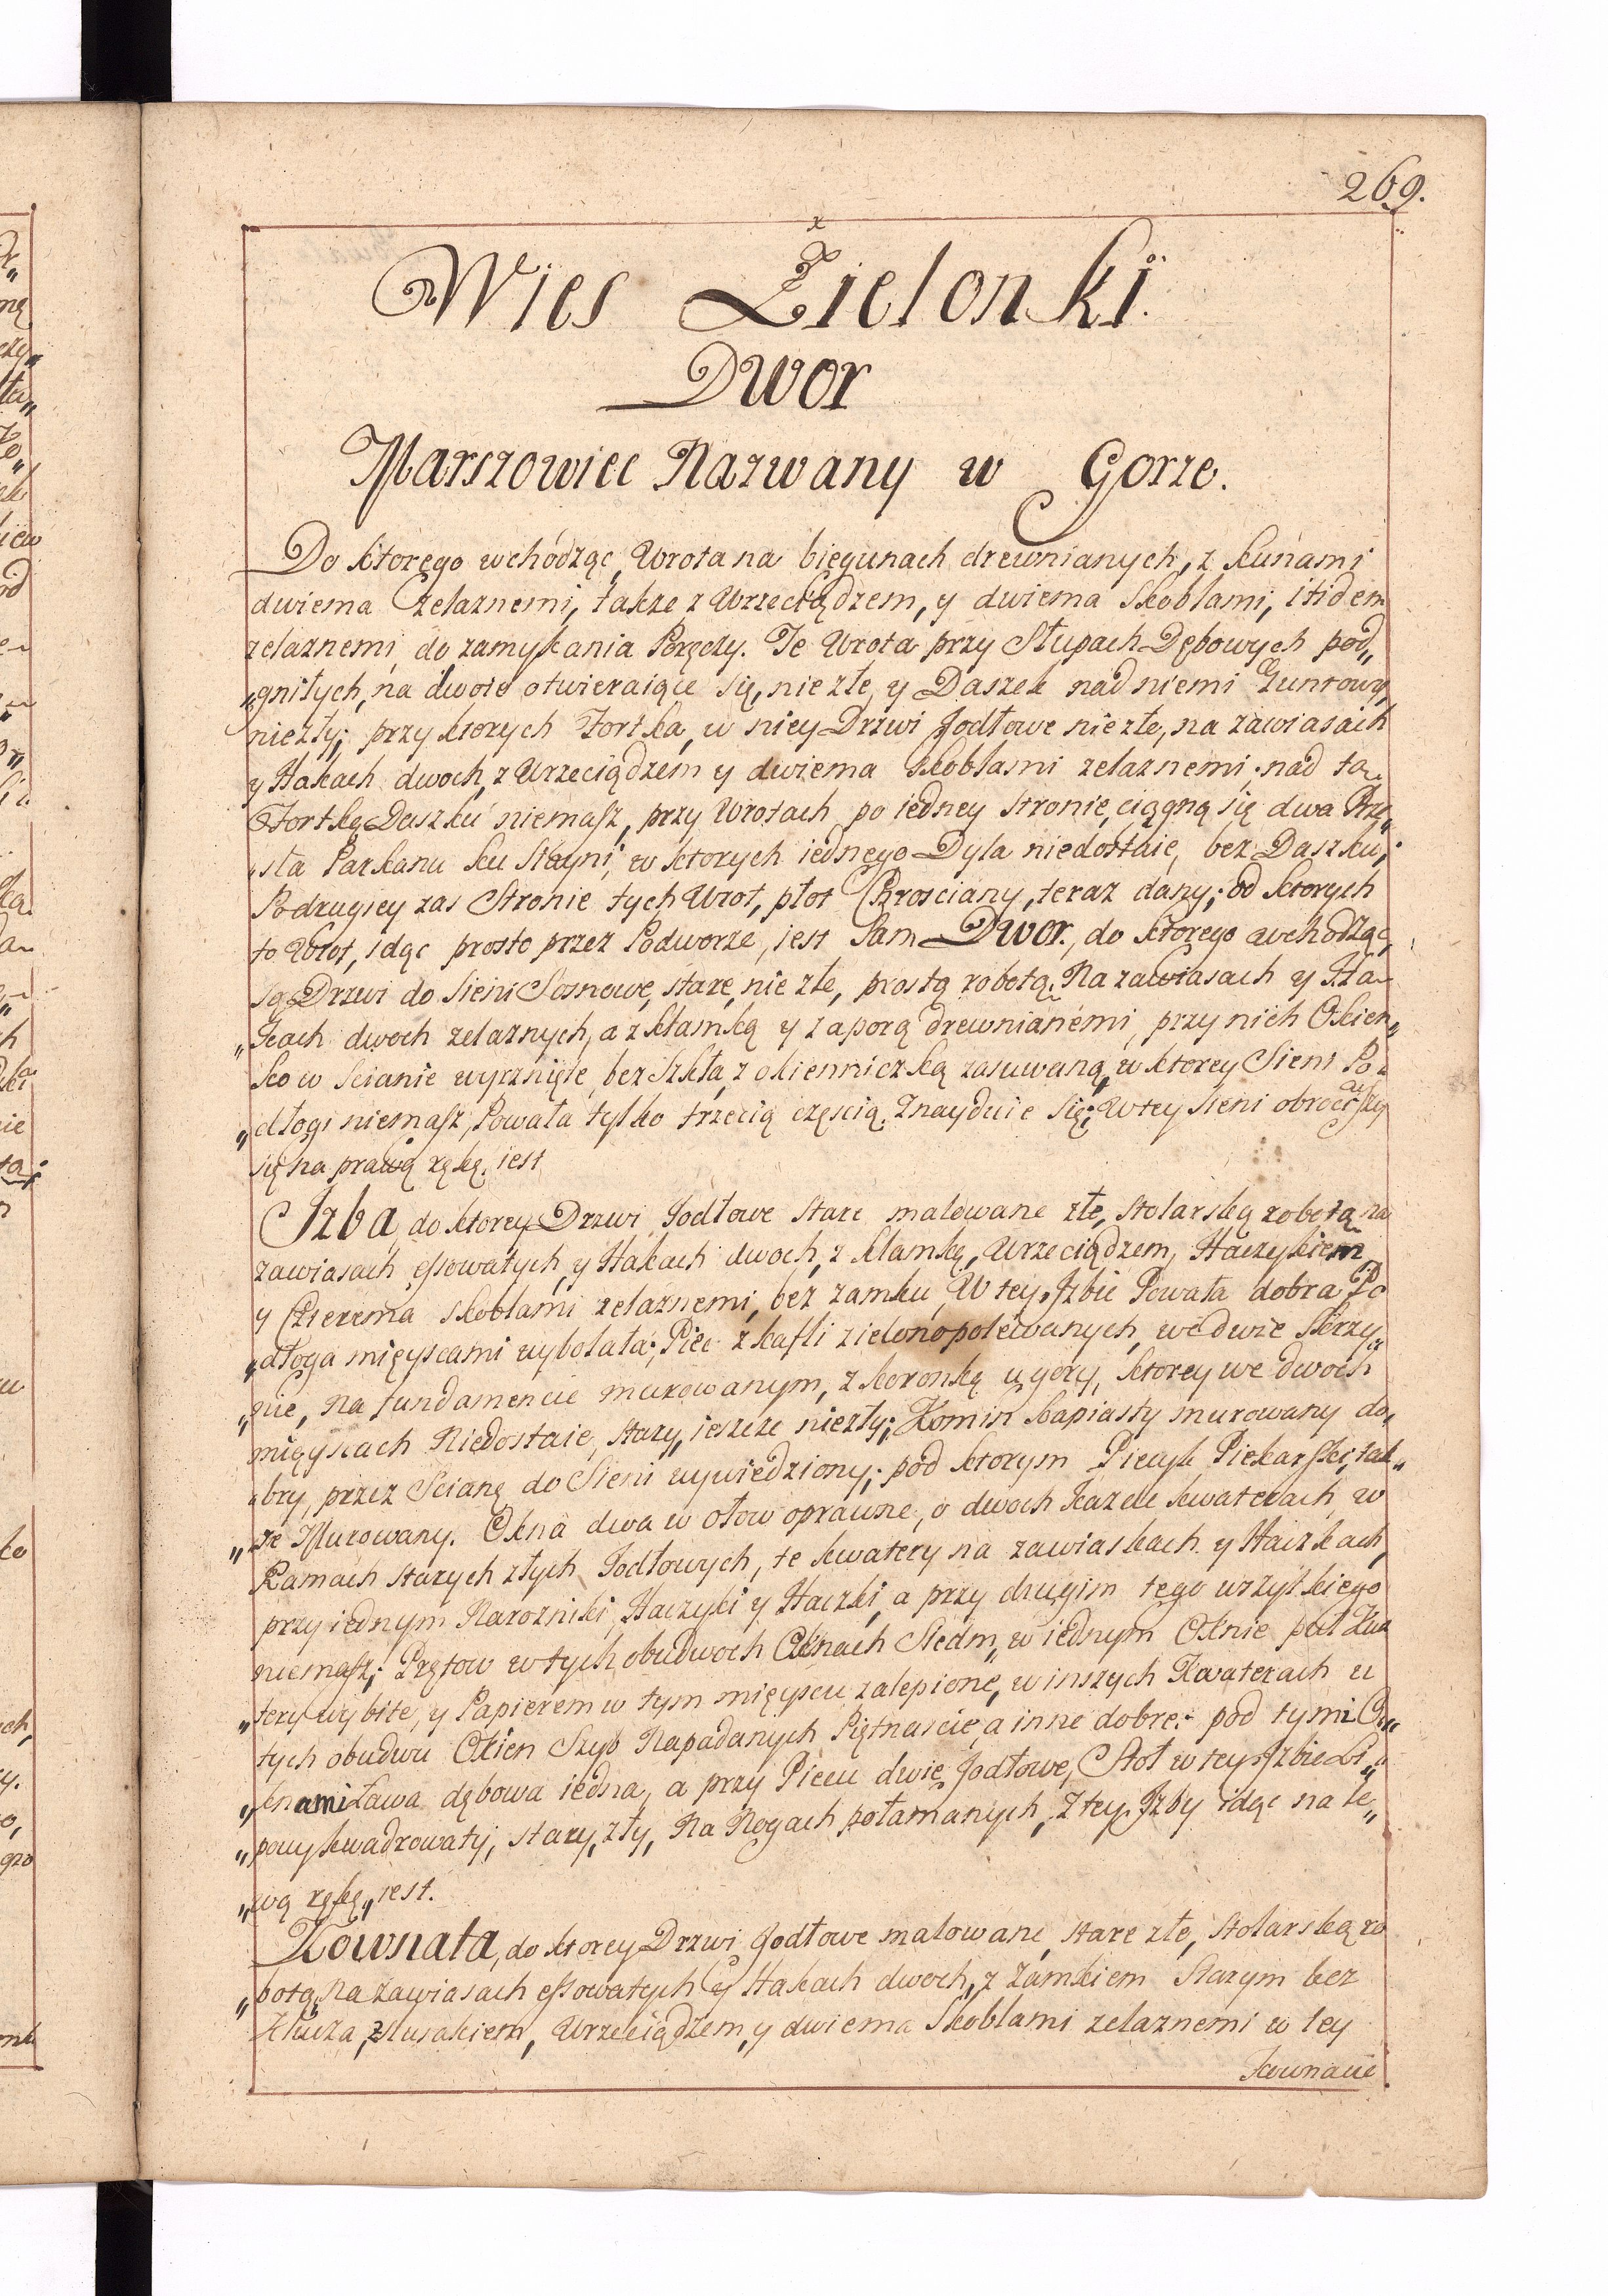 269.
Wies Zielonki.
Dwor
Marszowiec Nazwany w Gorze.
Do ktorego wchodząc, Wrota na biegunach drewnianych, z kunami
dwiema zelaznemi, także z Wrzeciądzem, y dwiema Skoblami, itidem
zelaznemi, do zamykania Poręczy. Te Wrota przy Słupach Dębowych pod„
„gniłych, na dwoie otwieraiące się, nie złe, y Daszek nad niemi Guntowy
niezły; przy ktorych Fortka, w niey Drzwi Jodłowe nie złe, na zawiasach
y Hakach dwoch, z Wrzeciądzem y dwiema Skoblami zelaznemi, nad tą
Fortką Daszku niemasz, przy Wrotach po iedney stronie, ciągną się dwa Przę„
„sła Parkanu ku Stayni, w ktorych iednego Dyla niedostaie, bez Daszku;
Po drugiey zas Stronie tych Wrot, płot Chrosciany, teraz dany; od ktorych
to Wrot, idąc prosto przez Podworze, iest Sam Dwor, do ktorego wchodząc,
są Drzwi do Sieni Sosnowe, stare, nie złe, prostą robotą, Na zawiasach y Ha„
„kach dwoch zelaznych, a z klamką y zaporą drewnianemi, przy nich Okien„
ko w scianie wyrznięte, bez Szkła, z okienniczką zasuwaną, w ktorey Sieni Po„
„dłogi niemasz, Powała tylko trzecią częscią Znayduie się; W tey Sieni obrociwszy
się na prawą rękę, iest
Izba, do ktorey Drzwi Jodłowe stare malowane złe, stolarską robotą na
zawiasach essowatych, y Hakach dwoch, z klamką, Wrzeciądzem, Haczykiem
y Czterema skoblami zelaznemi, bez zamku, W tey Jzbie Powała dobra Po
„dłoga mieyscami wybolała; Piec z kafli zielono polewanych, we dwie Skrzy„
„nie, na fundamencie murowanym, z koronką u gory, ktorey we dwoch
mieyscach Niedostaie, stary, ieszcze niezły; Komin kapiasty murowany do„
„bry, przez Scianę do Sieni wywiedziony; pod ktorym Piecyk Piekarski, tak„
„ze Murowany. Okna dwa w ołow oprawne, o dwoch każde kwaterach, w
Ramach starych złych Jodłowych, te kwatery na zawiaskach y Haczkach,
przy iednym Narozniki, Haczyki y Haczki, a przy drugim tego wszystkiego
niemasz; Prętow w tych obudwoch Oknach Siedm, w iednym Oknie puł Kwa
„tery wybite, y Papierem w tym mieyscu zalepione, w inszych Kwaterach u
tych obudwu Okien Szyb Napadanych Piętnascie, a inne dobre: pod tymi O„
„knami Ława dębowa iedna, a przy Piecu dwie Jodłowe, Stoł w tey Jzbie Li„
„powy kwadrowaty, stary, zły, Na Nogach połamanych, Z tey Jzby idąc na le„
„wą rękę, iest.
Kownata, do ktorey Drzwi Jodłowe malowane, stare złe, stolarską ro
„botą, Na zawiasach essowatych y Hakach dwoch, z Zamkiem Starym bez
klucza, z Wrzeciądzem, y dwiema Skoblami zelaznemi w tey
Kownacie